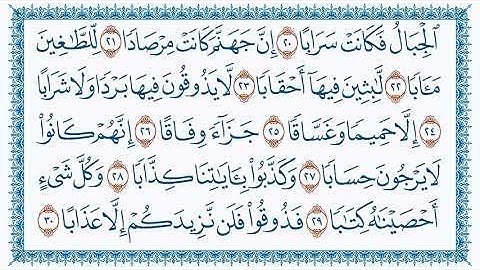 ٱلْجِبَالُ فَكَانَتْ سَرَابًا ٢٠ إِنَّ جَهَنَّمَ كَانَتْ مِرْصَادًا ٢١ لِّلطَّٰغِينَ
مَـَٔابًا ٢٢ لَّٰبِثِينَ فِيهَآ أَحْقَابًا ٢٣ لَّا يَذُوقُونَ فِيهَا بَرْدًا وَلَا شَرَابًا
٢٤ إِلَّا حَمِيمًا وَغَسَّاقًا ٢٥ جَزَآءً وِفَاقًا ٢٦ إِنَّهُمْ كَانُوا۟
لَا يَرْجُونَ حِسَابًا ٢٧ وَكَذَّبُوا۟ بِـَٔايَٰتِنَا كِذَّابًا ٢٨ وَكُلَّ شَىْءٍ
أَحْصَيْنَٰهُ كِتَٰبًا ٢٩ فَذُوقُوا۟ فَلَن نَّزِيدَكُمْ إِلَّا عَذَابًا ٣٠